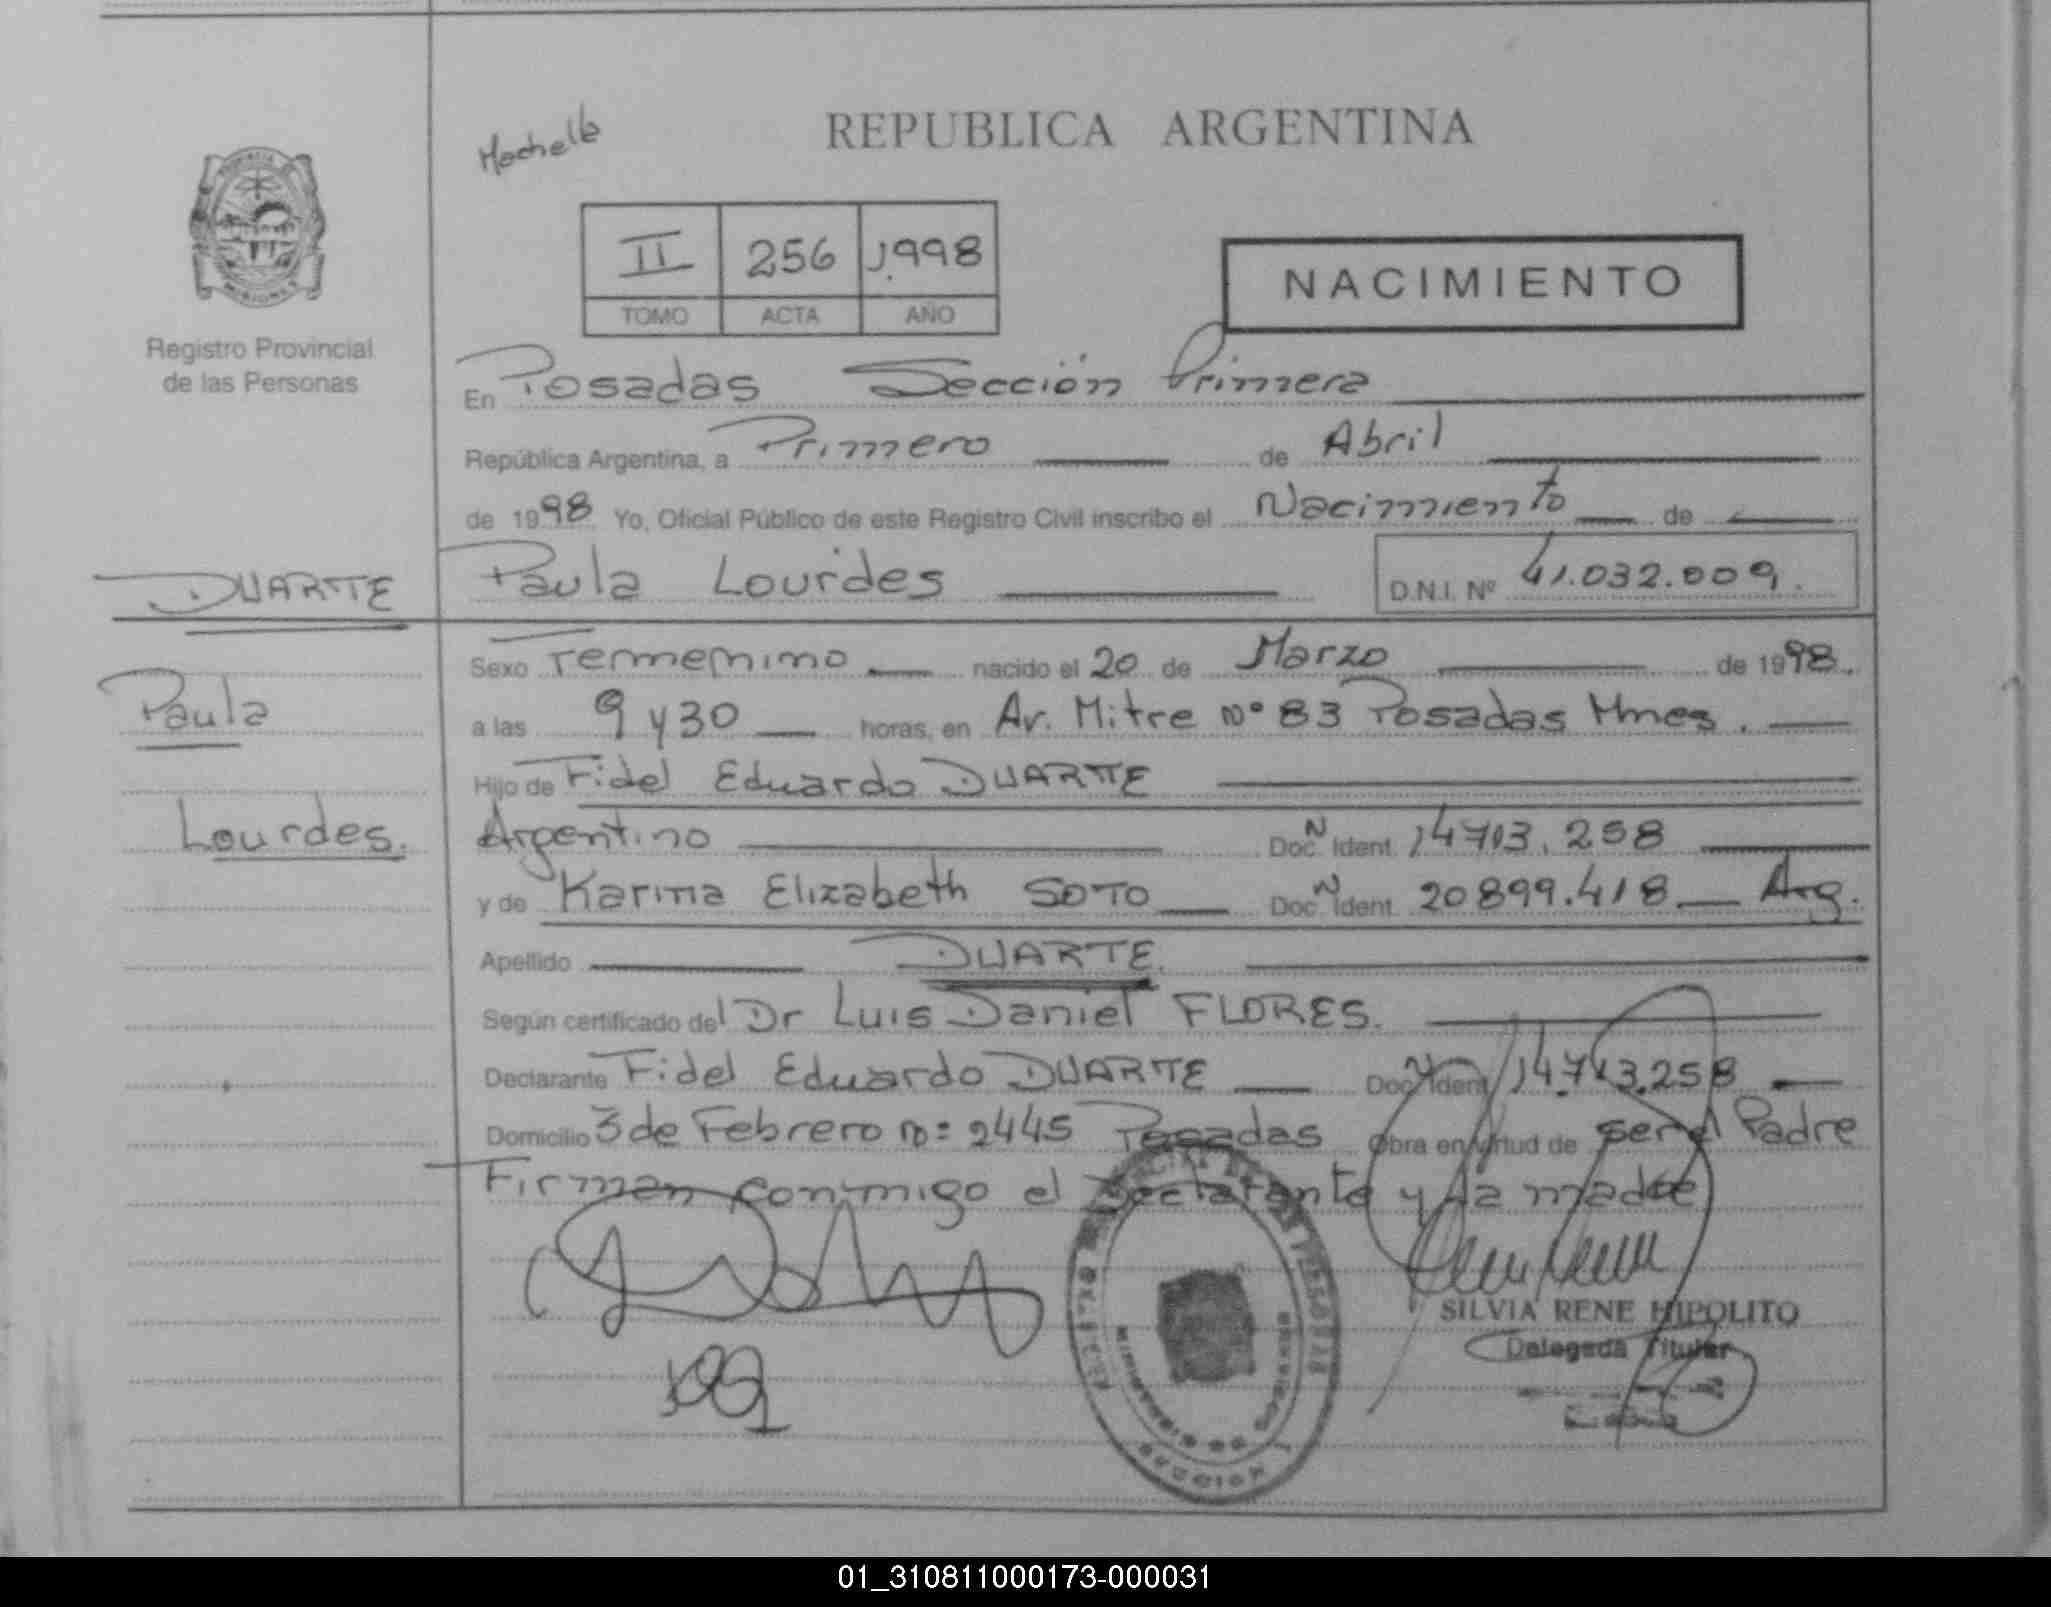 REPUBLICA ARGENTINA
II 256 1998
TOMO ACTA AÑO
NACIMIENTO
MISIONES
Registro Provincial
de las Personas
En Posadas Sección Primera
República Argentina, a Primero de Abril
de 1998 Yo, Oficial Público de este Registro Civil inscribo el Nacimiento de
DUARTE Paula Lourdes D.N.I. Nº 41.032.009.
Paula
Lourdes.
Sexo Femenino nacido el 20 de Marzo de 1998
a las 9 y 30 horas, en Av. Mitre Nº 83 Posadas Mnes.
Hijo de Fidel Eduardo DUARTE
Argentino Doc. N Ident. 14713.258
y de Karina Elizabeth SOTO Doc. N Ident. 20899.418 Arg.
Apellido DUARTE.
Según certificado del Dr Luis Daniel FLORES.
Declarante Fidel Eduardo DUARTE Doc. N Ident. 14.713.258
Domicilio 3 de Febrero Nº: 2445 Posadas Obra en virtud de ser el Padre
Firman conmigo el Declarante y la madre
SILVIA RENE HIPOLITO
Delegada Titular
01_310811000173-000031